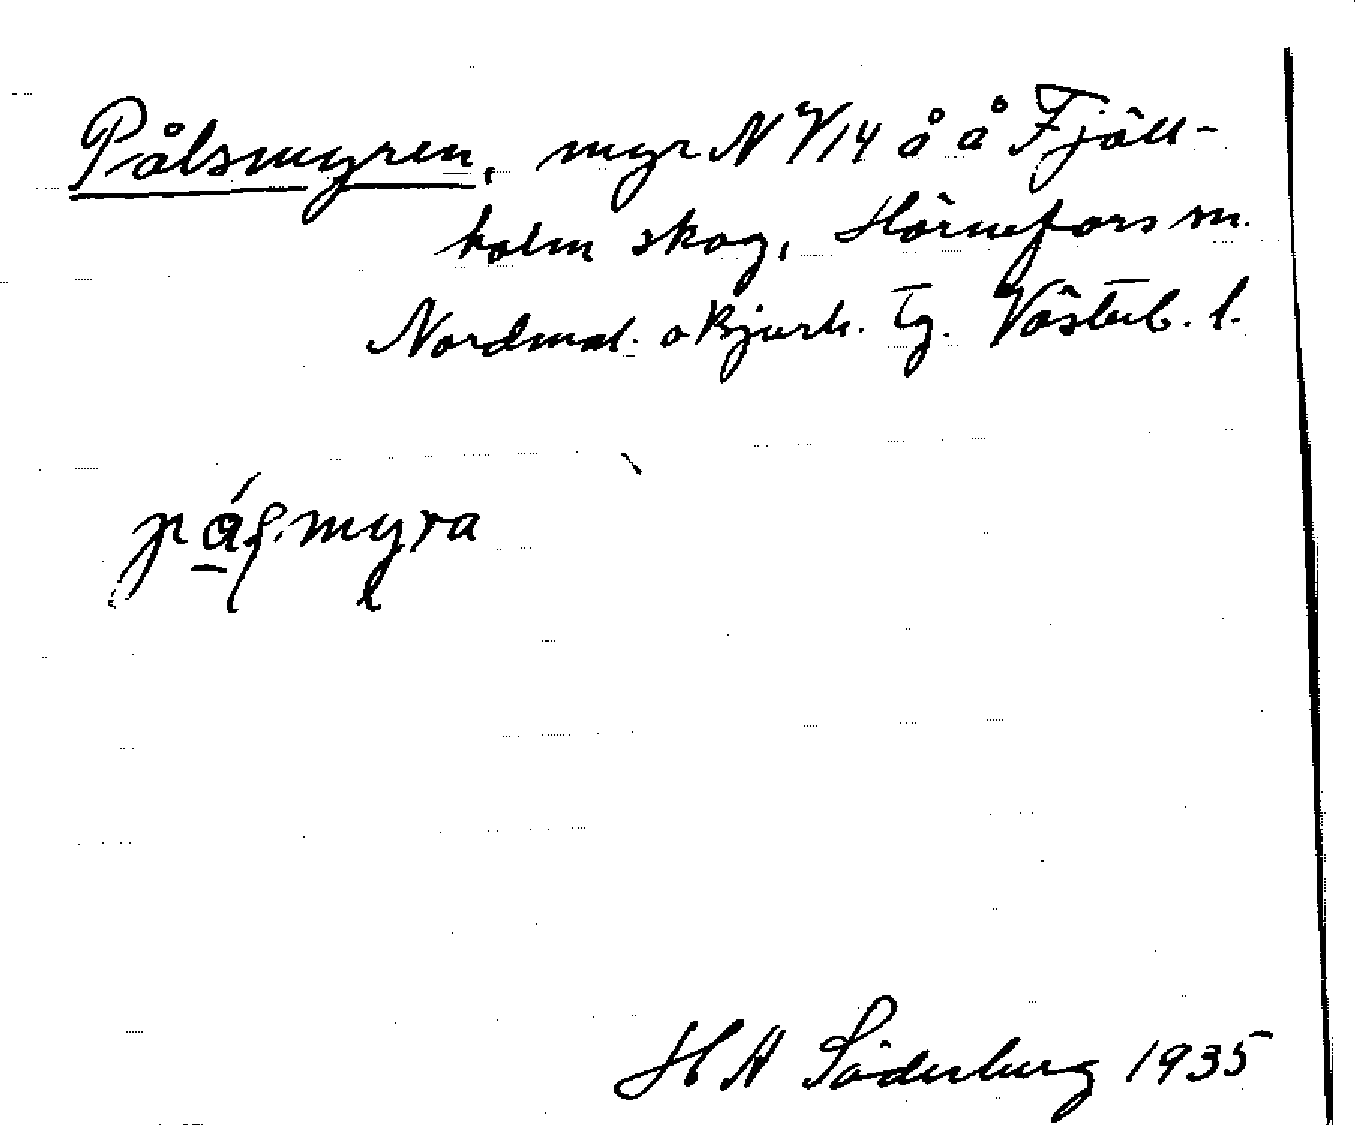 Pålsmyren, myr N V/14 å å Fjäll-
holm skog, Hörnefors sn.
Nordmal. o Bjurh. Tg. Västerb. l.
H A Söderberg 1935